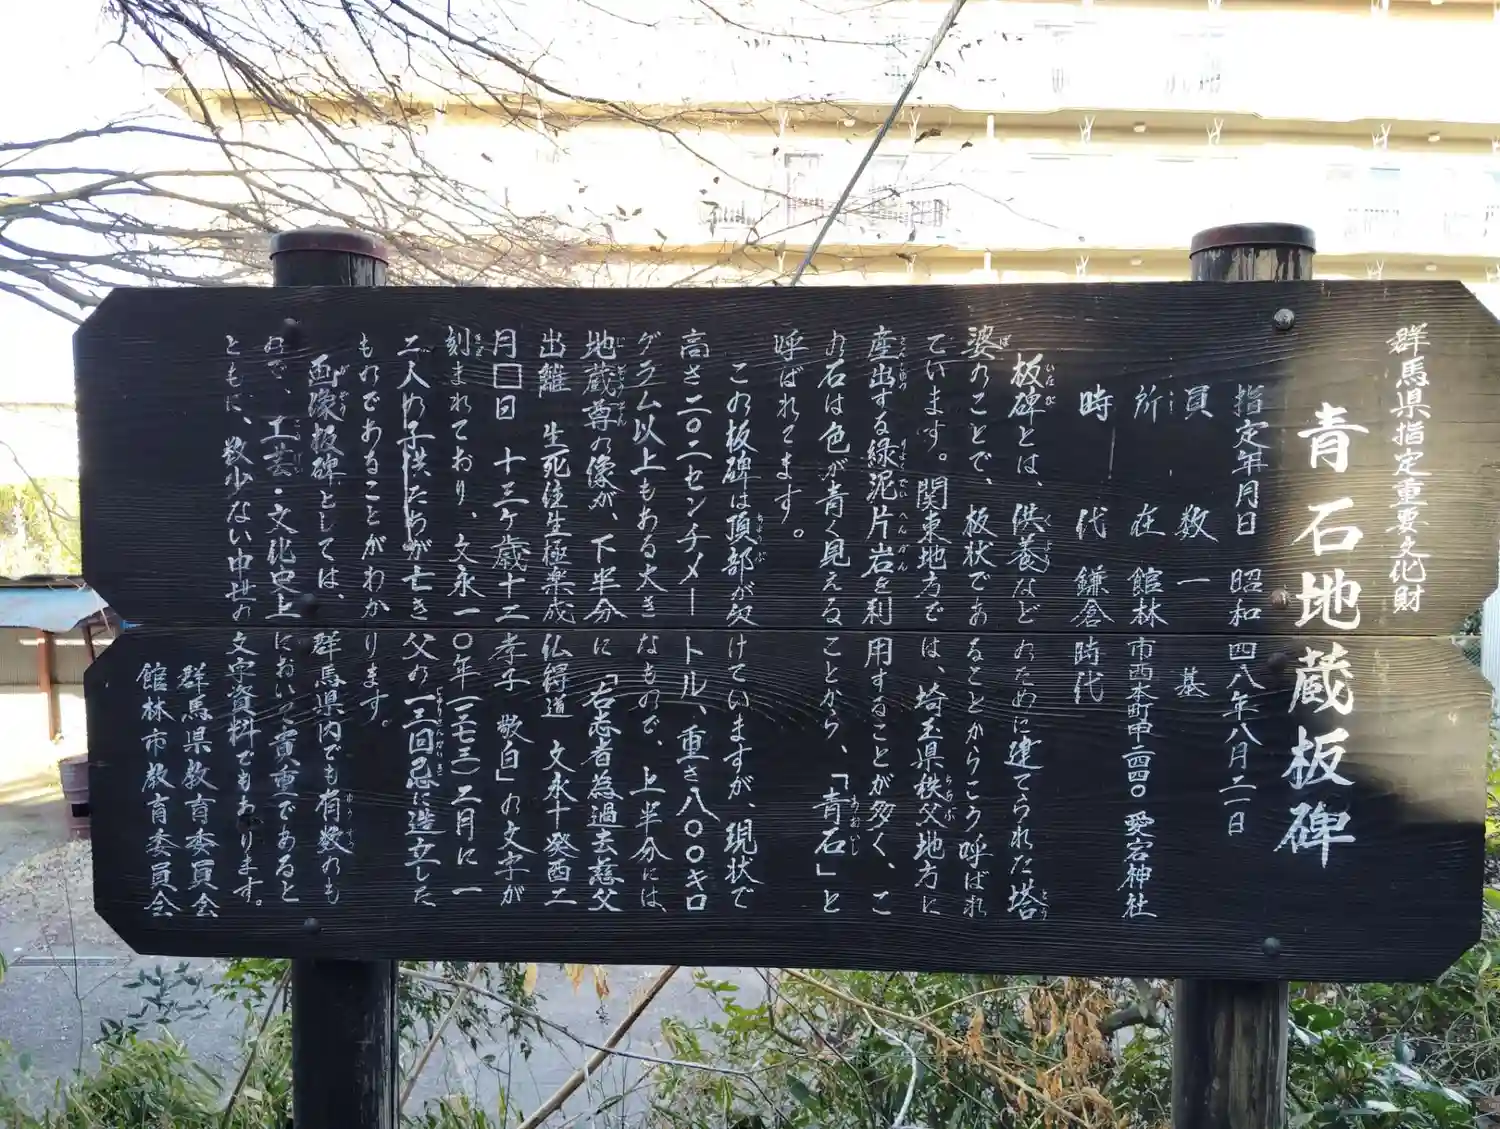 群馬県指定重要文化財
青石地蔵板碑
指定年月日　昭和四八年八月二一日
員数　一基
所在　館林市西本町甲二四四〇　愛宕神社
時代　鎌倉時代
板碑とは、供養などのために建てられた塔
婆のことで、板状であることからこう呼ばれ
ています。関東地方では、埼玉県秩父地方に
産出する緑泥片岩を利用することが多く、こ
の石は色が青く見えることから、「青石」と
呼ばれてます。
この板碑は頂部が欠けていますが、現状で
高さ二〇二センチメートル、重さ八〇〇キロ
グラム以上もある大きなもので、上半分には、
地蔵尊の像が、下半分に「右志者為過去慈父
出離　生死往生極楽成仏得道　文永十癸酉二
月□日　十三ケ歳十二孝子　敬白」の文字が
刻まれており、文永一〇年（一二七三）二月に一
二人の子供たちが亡き父の一三回忌に造立した
ものであることがわかります。
画像板碑としては、群馬県内でも有数のも
ので、工芸・文化史上において貴重であると
ともに、数少ない中世の文字資料でもあります。
群馬県教育委員会
館林市教育委員会